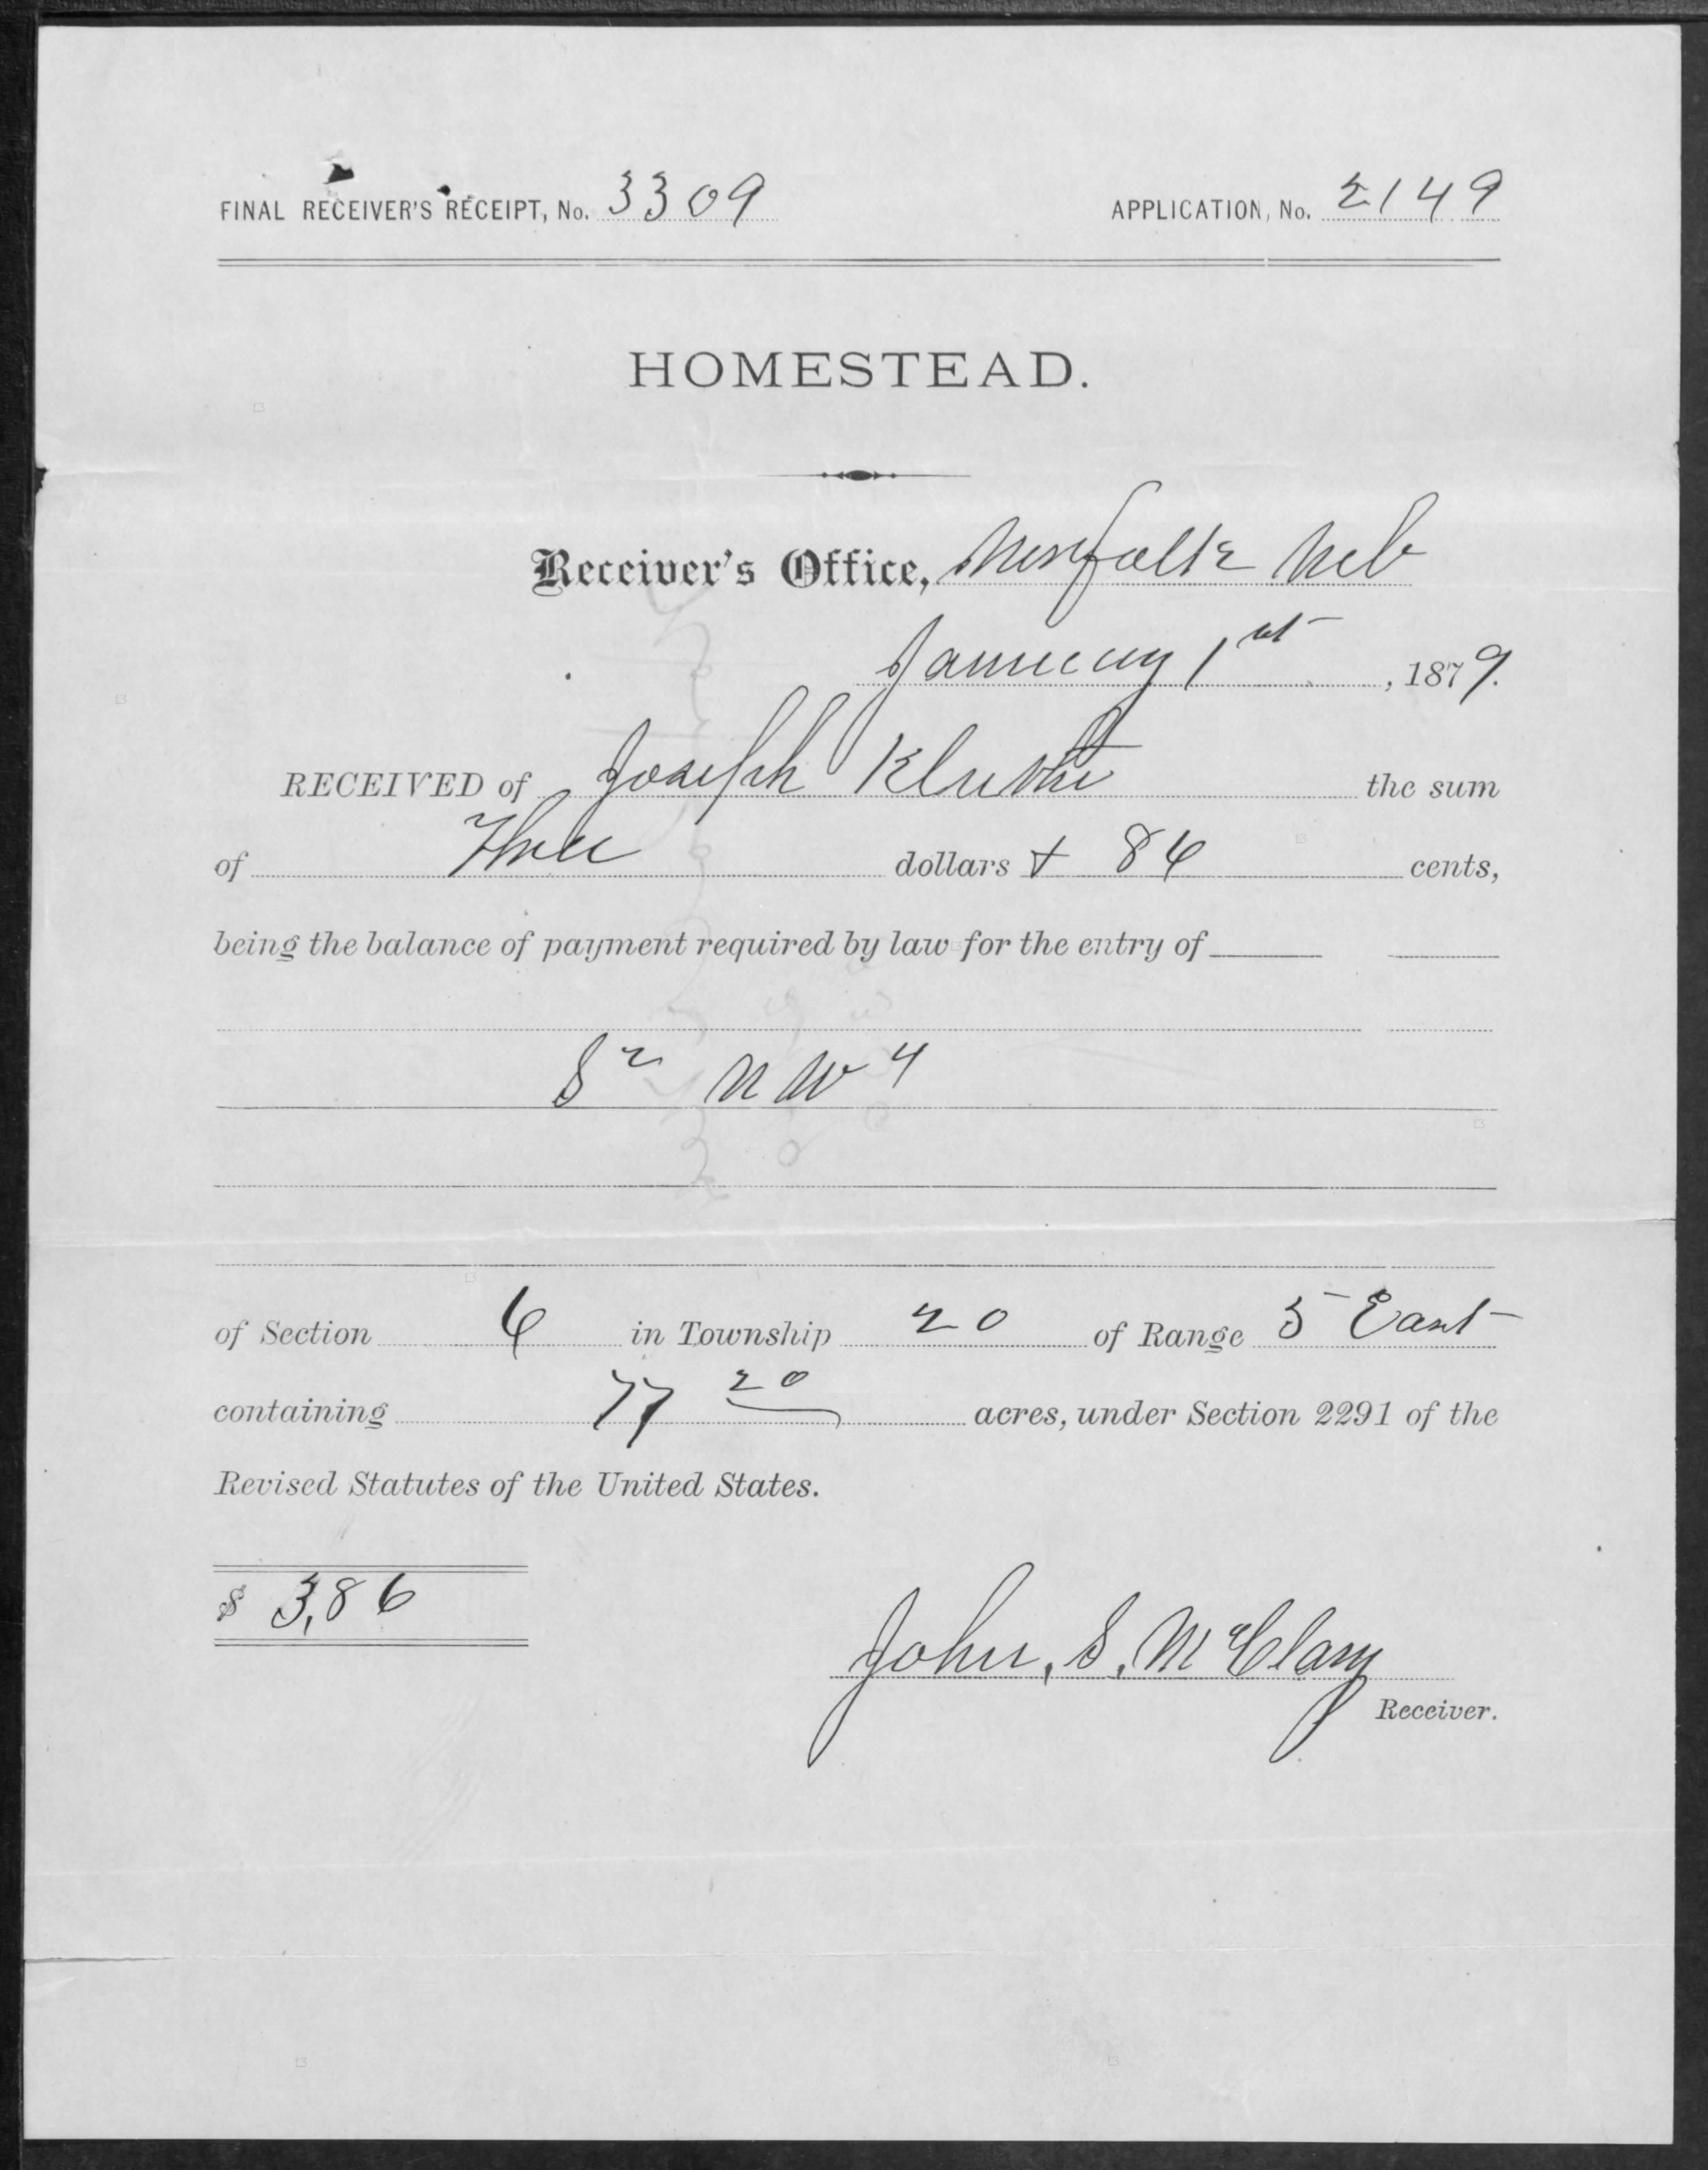 FINAL RECEIVER'S RECEIPT, No. 3309 APPLICATION, No. 2149
HOMESTEAD.
Receiver's Office, Norfolk Neb
January 1st, 1879.
RECEIVED of Joseph Kluthe the sum
of Three dollars + 86 cents,
being the balance of payment required by law for the entry of
S2 NW4
of Section 6 in Township 20 of Range 5 East
containing 77 20 acres, under Section 2291 of the
Revised Statutes of the United States.
$ 3,86
John, S, McClary
Receiver.